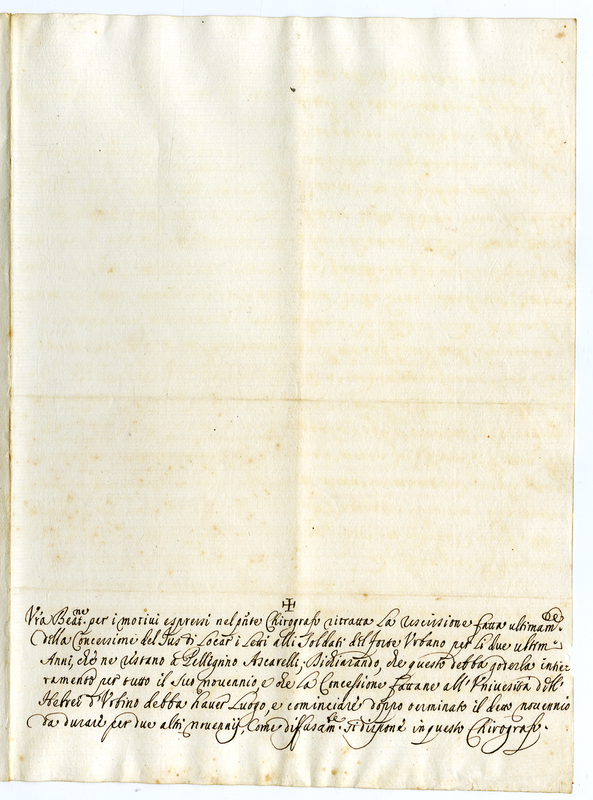 ✠
Vra Beat.ne per i motivi espressi nel pñte Chirografo ritratta La rescissione fatta ultimam.te
della Concessione del Jus di Locar i Letti alli Soldati del forte Urbano per li due ultimi
Anni, che ne restano à Pellegrino Ascarelli, Dichiarando, che questo debba goderla intie-
ramente per tutto il suo novennio, e che La Concessione fattane all'Università dell'
Hebrei d'Urbino debba haver Luogo, e cominciare doppo terminato il novennio
da durare per due altri novennij, Come diffusam.te si dispone in questo Chirografo.